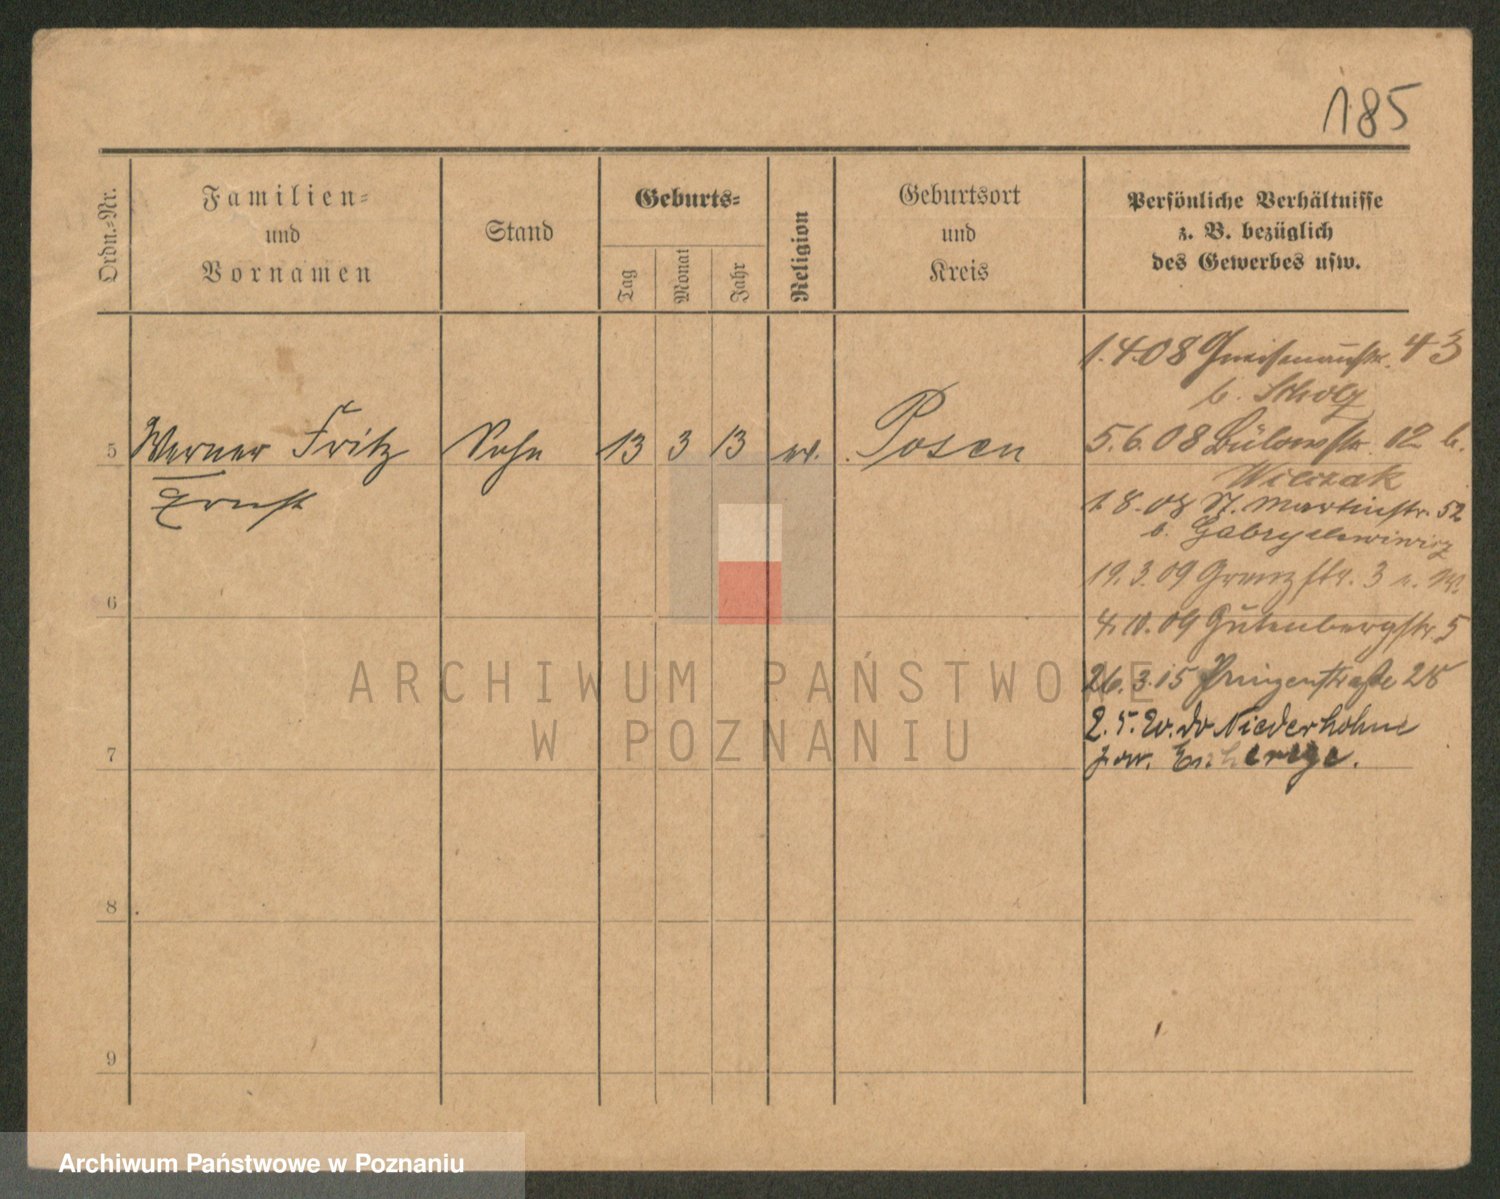 185
Ordn.-Nr.
Familien-
und
Vornamen
Stand
Geburts-
Tag
Monat
Jahr
Religion
Geburtsort
und
Kreis
Persönliche Verhältnisse
z. B. bezüglich
des Gewerbes usw.
5 Werner Fritz Sohn 13 3 13 ev. Posen
Ernst
1.4.08 Gneisenaustr. 43
b. Scholz
5.6.08 Bülowstr. 12 b.
Wilczak
1.8.08 St. Martinstr. 52
b.
19.3.09 Grenzstr. 3
4.10.09 Gutenbergstr. 5
26.3.15 Prinzenstraße 28
2.5.20. Niederhohne
6
7
8
9
ARCHIWUM PAŃSTWOWE
W POZNANIU
Archiwum Państwowe w Poznaniu